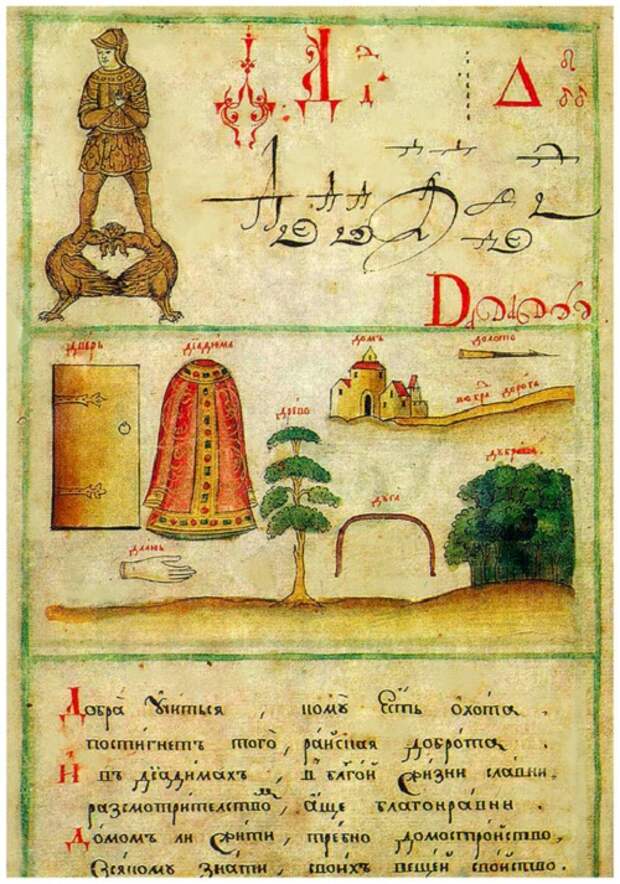 Д Д Δ
D
двѣрь діадима домъ долото
добра дорога
древо
дꙋбрава
дꙋга
длань
Добра ᲂучиться , комꙋ Есть охота .
постигнетъ того , раиская доброта .
И въ діадимахъ , в благой жизни славни .
разсмотрителство , аще благонравни .
Домомъ ли жити , требно домостройство ,
Всякомꙋ знати , своихъ вещей свойство .